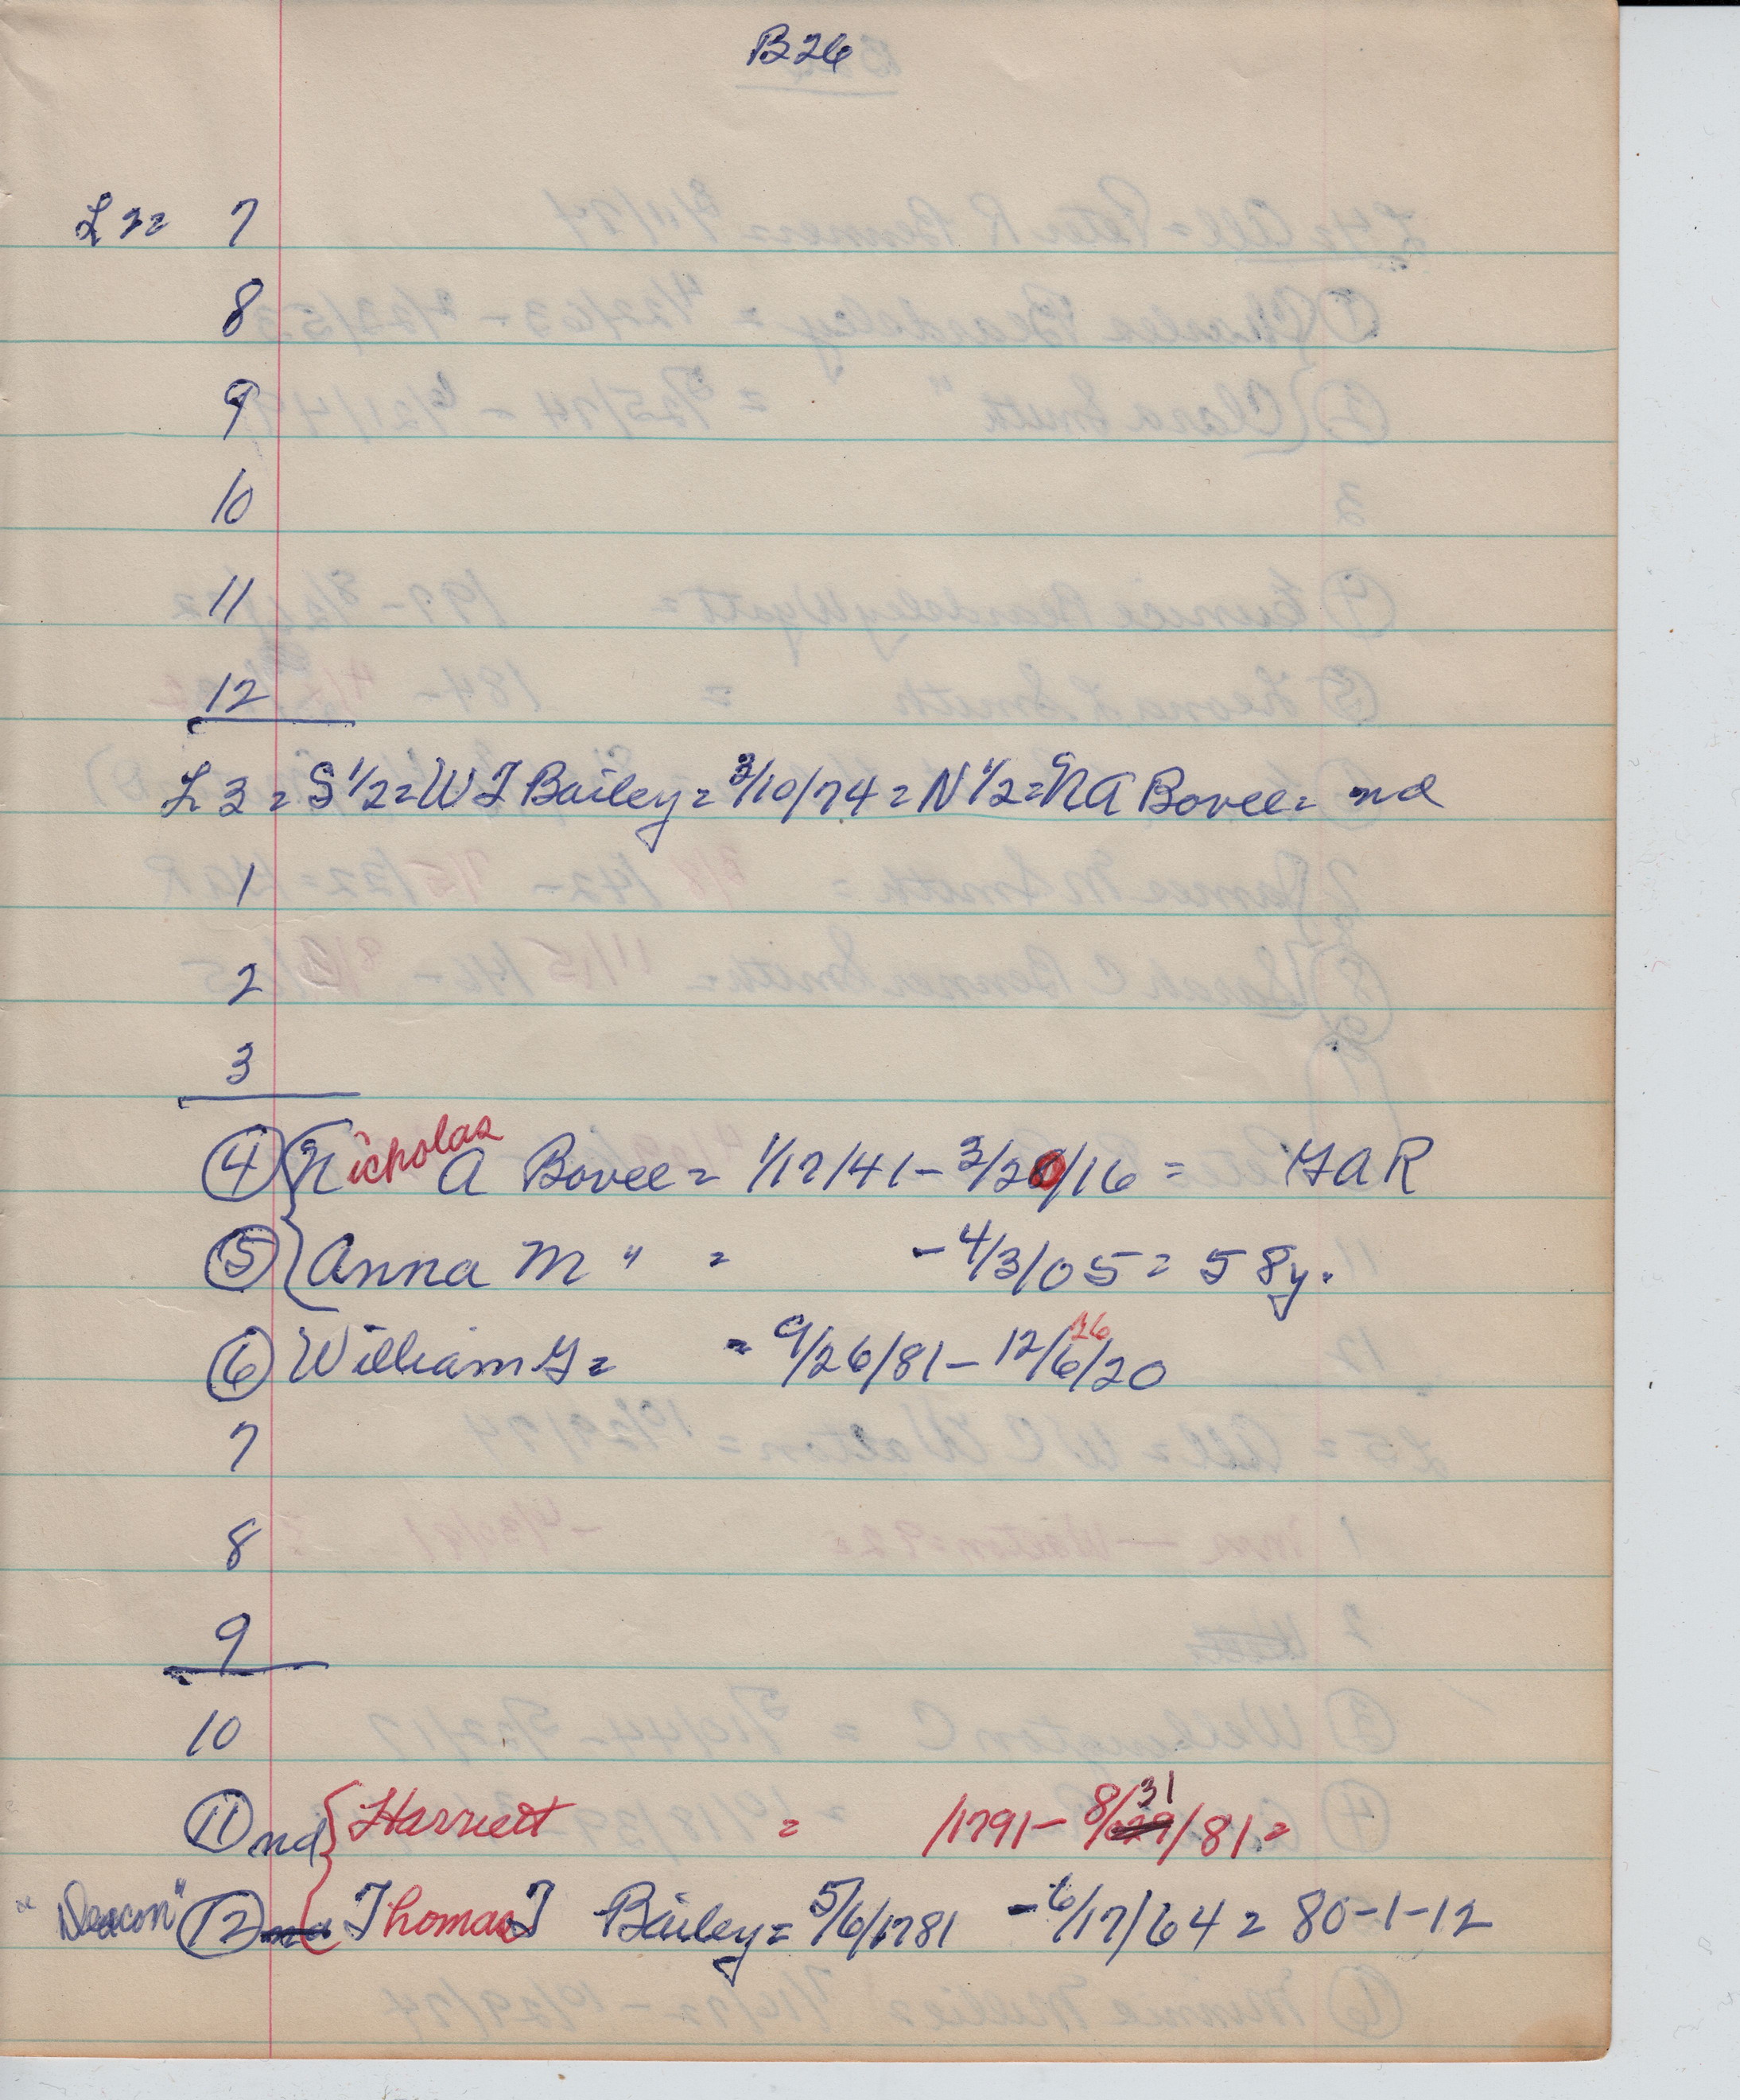 B26
L2= 7
8
9
10
11
12
L3 = S 1/2 = W T Bailey = 3/10/74 = N 1/2 = N A Bovee = nd
1
2
3
4 Nicholas A Bovee = 1/17/41 - 3/20/16 = GAR
5 Anna M " = - 4/3/05 = 58y.
6 William G = = 9/26/81 - 12/6/20 26
7
8
9
10
11 nd Harriett = /1791 - 8/29/81 = 31
"Deacon" 12 nd Thomas T Bailey = 5/6/1781 - 6/17/64 = 80-1-12